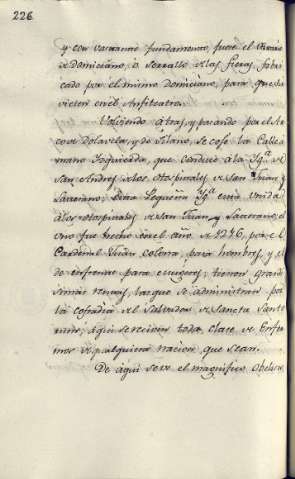 226
y con bastante fundamento, fuese el Vivario
de Domiciano, o Serrallo de las fieras fabri
cado por el mismo Domiciano, para que sir
viesen en el Anfiteatro.
Volviendo atras, y pasando por el Ar
co de Dolavela, y de Silano, se coje la Calle á
mano Izquierda, que conduce á la Ygª. de
San Andres, á los Ospitales de San Juan y
Laterano; Esta pequeña Ygª. está unida
á los ospitales de San Juan, y Laterano, el
uno fue hecho en el año de 1276, por el
Cardenal Juan Colona, para hombres, y el
de enfrente para mugeres; tienen grandi
simas rentas, las que se administran por
la cofradia del Salvador de Sancta Sanc
torum; aqui se reciven toda clase de Enfer
mos de qualquiera nacion, que sean.
De aqui se ve el magnifico Obelisco